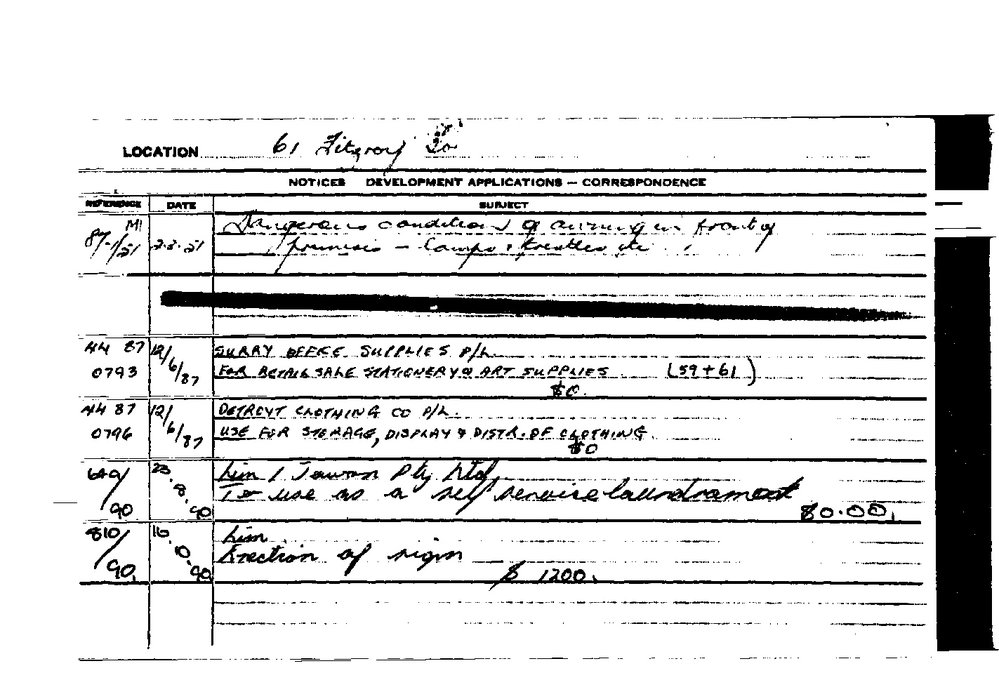 LOCATION 61 Fitzroy St
NOTICES DEVELOPMENT APPLICATIONS — CORRESPONDENCE
REFERENCE DATE SUBJECT
MI Dangerous condition of awning in front of
87-1/51 2.2.51 premises — lamps, trestles etc
44 87 12/6/87 SURRY OFFICE SUPPLIES P/L.
0793 FOR RETAIL SALE STATIONERY & ART SUPPLIES (59+61)
$0.
44 87 12/6/87 DETROYT CLOTHING CO P/L.
0796 USE FOR STORAGE, DISPLAY & DISTR. OF CLOTHING
$0
649/90 23.8.90 Lim / Pty Ltd
To use as a self service laundramost
$0.00.
810/90. 16.10.90 Lim
Erection of sign
$ 1200.